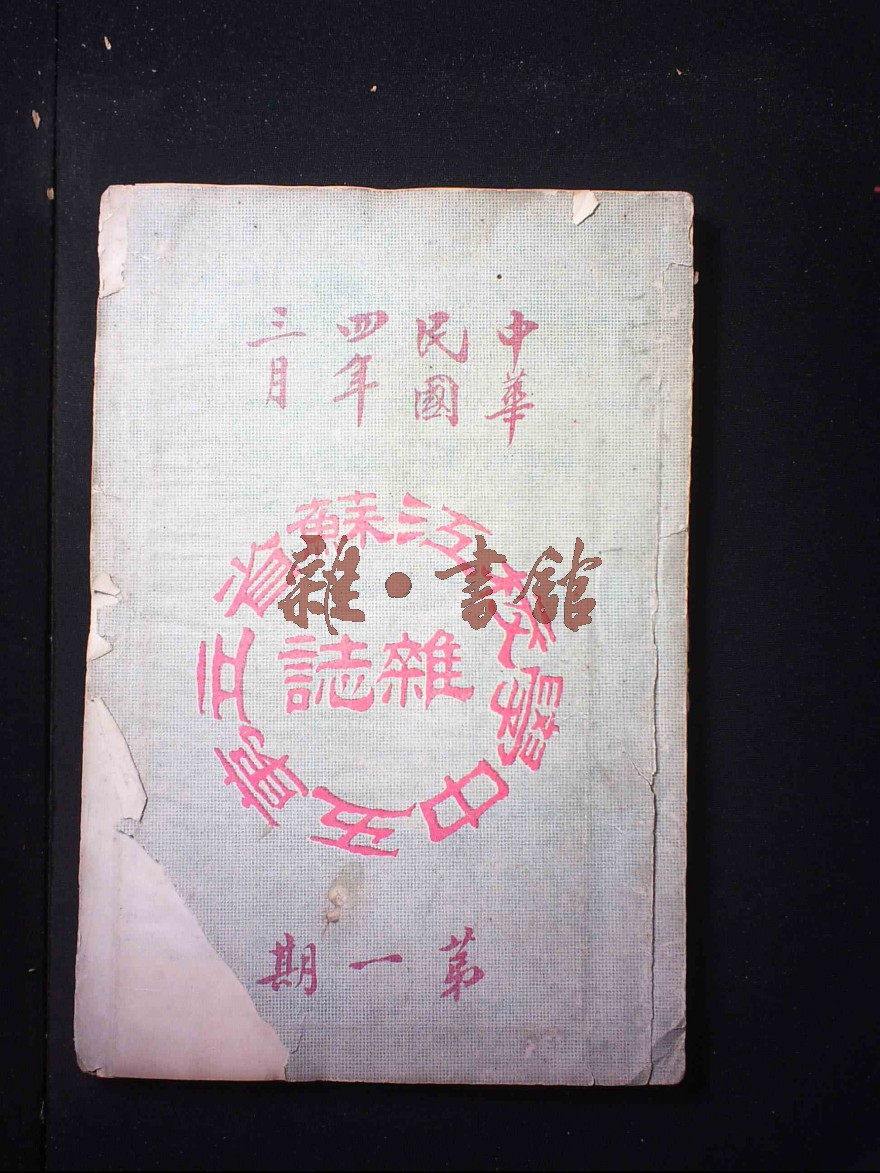 中華民國四年三月
江蘇省立第五中學校
雜誌
第一期
雜·書館